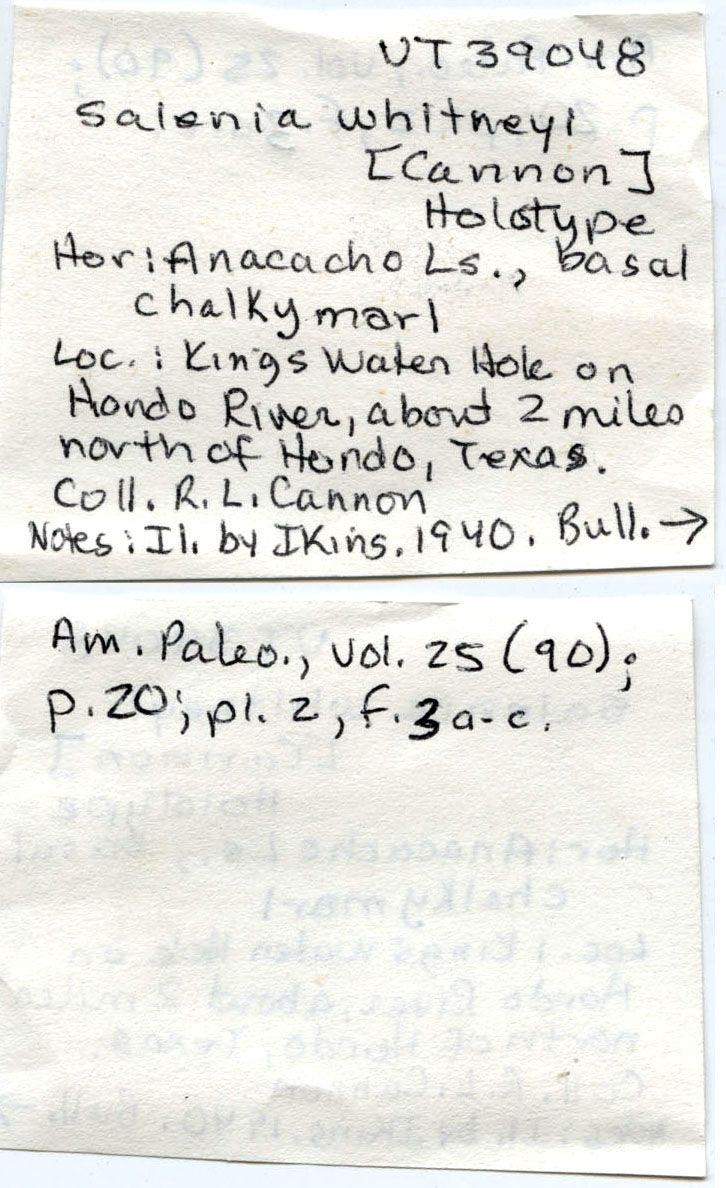 UT 39048
Salenia whitneyi
[Cannon]
Holotype
Hor: Anacacho Ls., basal
chalky marl
Loc.: Kings Water Hole on
Hondo River, about 2 miles
north of Hondo, Texas.
Coll. R. L. Cannon
Notes: Il. by IKins. 1940. Bull. →
Am. Paleo., vol. 25 (90);
p. 20; pl. 2, f. 3 a-c.